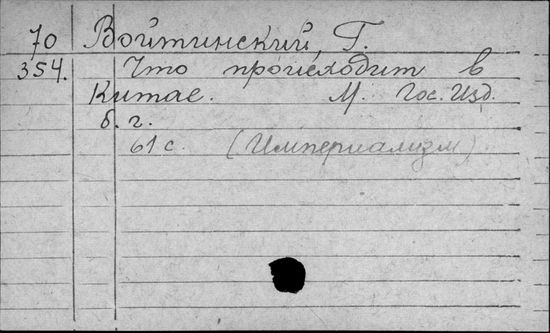 70 Войтинский, Г.
354. Что происходит в
Китае. М. Гос. Изд.
б. г.
61 с. (Империализм)